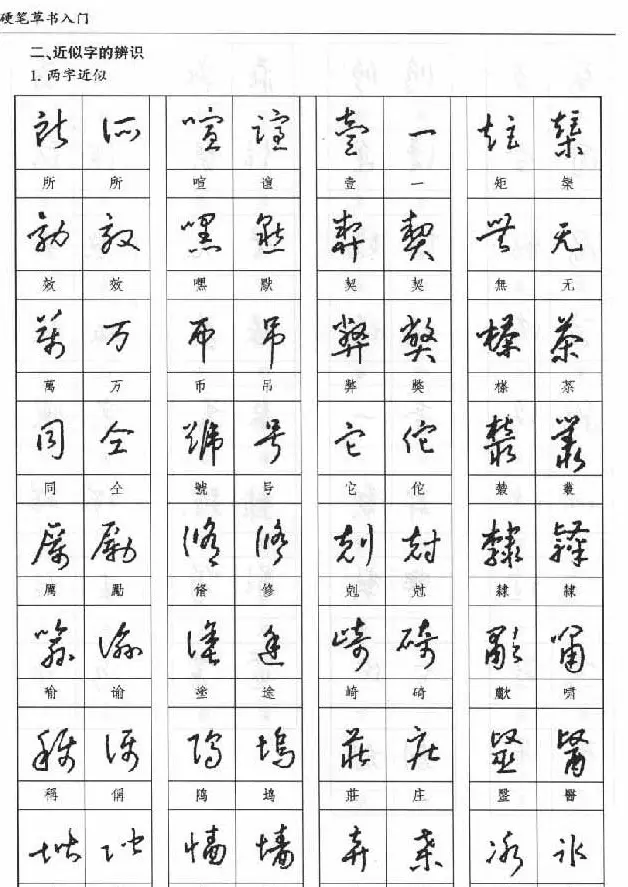 硬笔草书入门
二、近似字的辨识
1. 两字近似
所 所 喧 諠 壹 一 矩 榘
效 效 嘿 默 契 契 無 无
萬 万 币 吊 弊 獘 榛 茶
同 仝 號 号 它 佗 藂 叢
厲 勵 脩 修 剋 尅 隸 隷
喻 谕 塗 途 崎 碕 歗 嘯
稱 偁 隖 塢 莊 庄 毉 醫